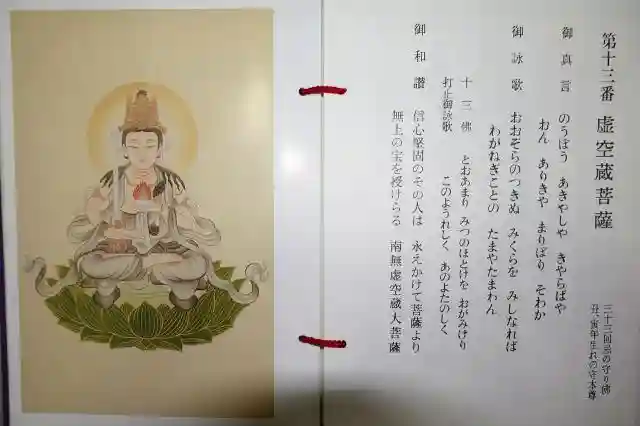 第十三番 虚空蔵菩薩
三十三回忌の守り佛
丑、寅年生れの守本尊
御真言 のうぼう あきやしや きやらばや
おん ありきや まりぼり そわか
御詠歌 おおぞらのつきぬ みくらを みしなれば
わがねぎことの たまやたまわん
十三佛 とおあまり みつのほとけを おがみけり
打止御詠歌 このようれしく あのよたのしく
御和讃 信心堅固のその人は 永えかけて菩薩より
無上の宝を授けらる 南無虚空蔵大菩薩